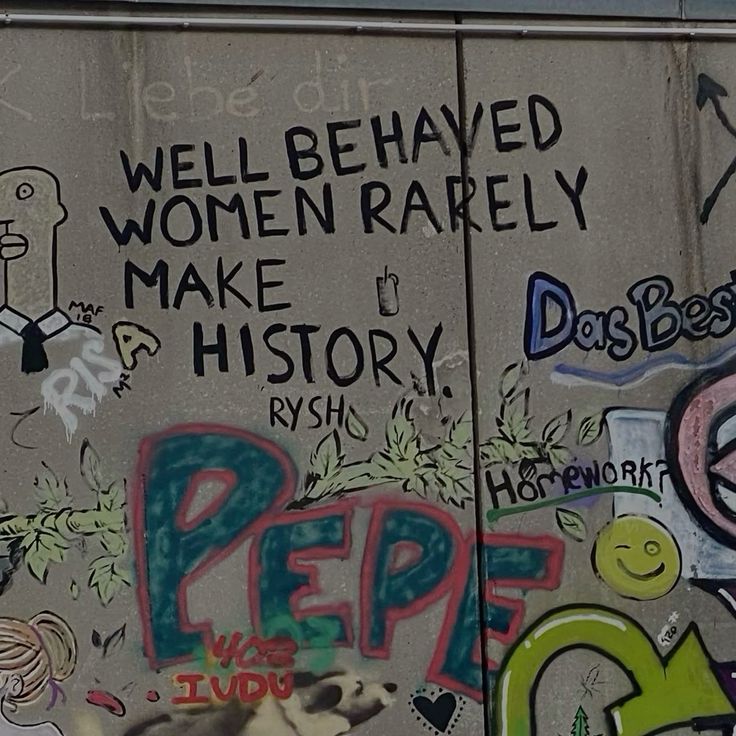 Liebe dir
WELL BEHAVED
WOMEN RARELY
MAKE
HISTORY.
RYSH
MAF
18
RIS
A
Das Best
HOMEWORK?
PEPE
IUDU